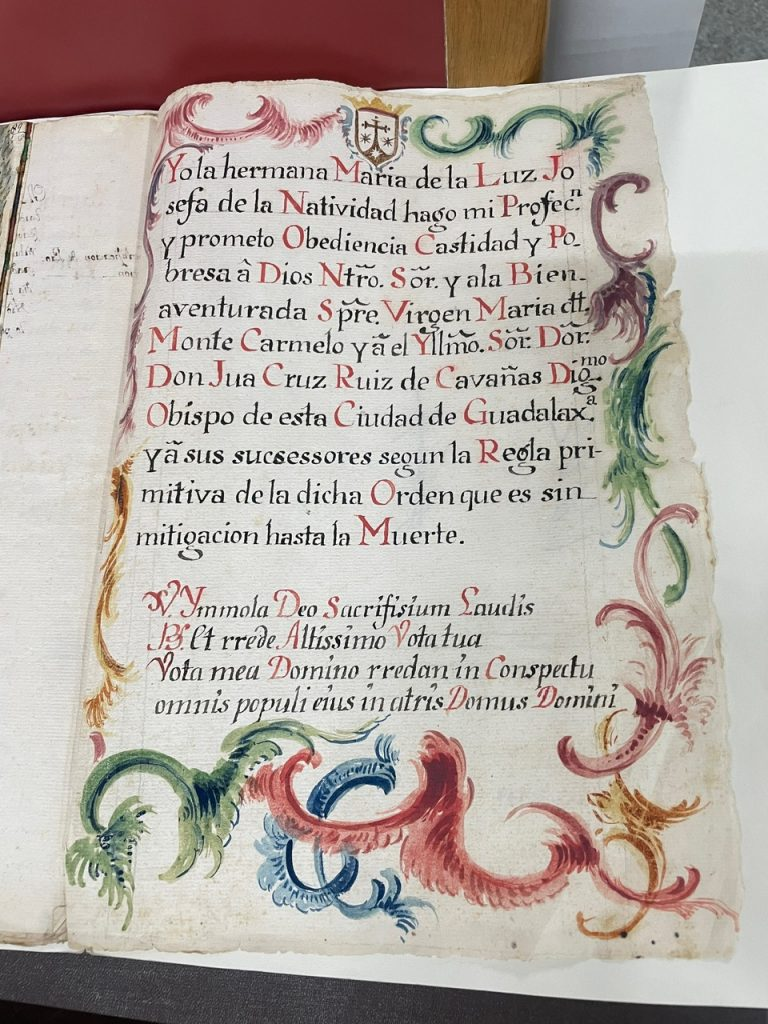 Yo la hermana Maria de la Luz Jo
sefa de la Natividad hago mi Profec.n
y prometo Obediencia Castidad y Po-
bresa â Dios Ntr̃o. Sõr. y ala Bien-
aventurada Sp̃re. Virgen Maria dtt.
Monte Carmelo y ã el Yllm̃o. Sõr. Dõr.
Don Jua Cruz Ruiz de Cavañas Dig.mo
Obispo de esta Ciudad de Guadalax.a
y ã sus sucsessores segun la Regla pri-
mitiva de la dicha Orden que es sin
mitigacion hasta la Muerte.
V. Ymmola Deo Sacrifisium Laudis
R. Et rrede Altissimo Vota tua
Vota mea Domino rredan in Conspectu
omnis populi eius in atris Domus Domini